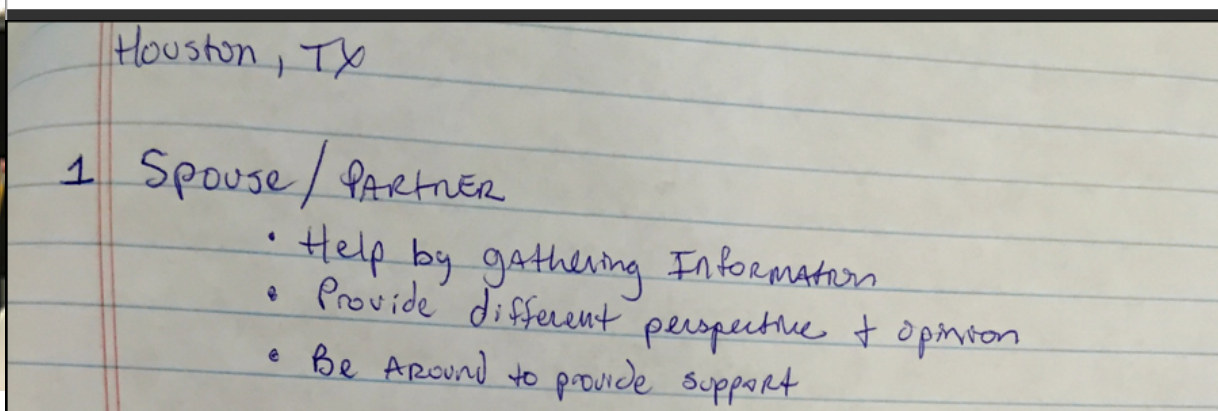 Houston, TX
1 Spouse / PARtnER
• Help by gAthering InformAtion
• Provide different perspective + opinion
• Be Around to provide support